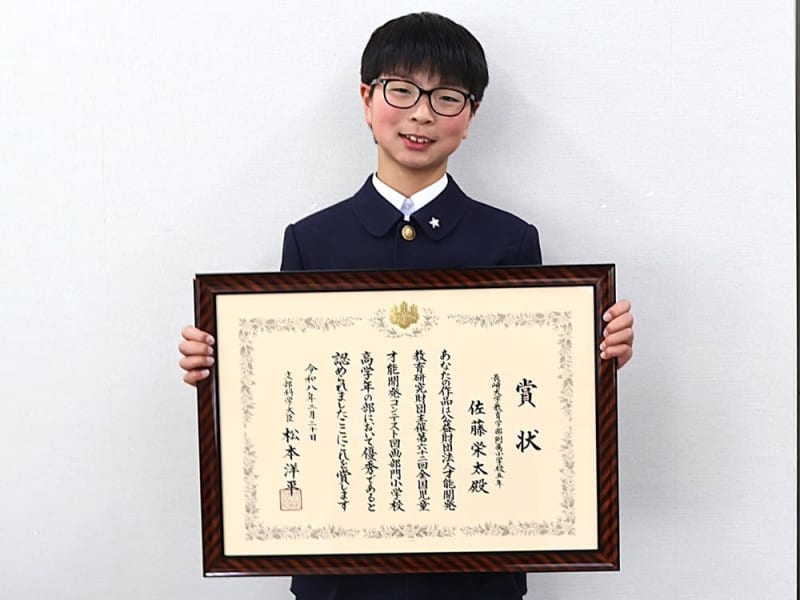 賞状
長崎大学教育学部附属小学校五年
佐藤栄太殿
あなたの作品は公益財団法人才能開発
教育研究財団主催第六十二回全国児童
才能開発コンテスト図画部門小学校
高学年の部において優秀であると
認められましたここにこれを賞します
令和八年二月二十日
文部科学大臣 松本洋平